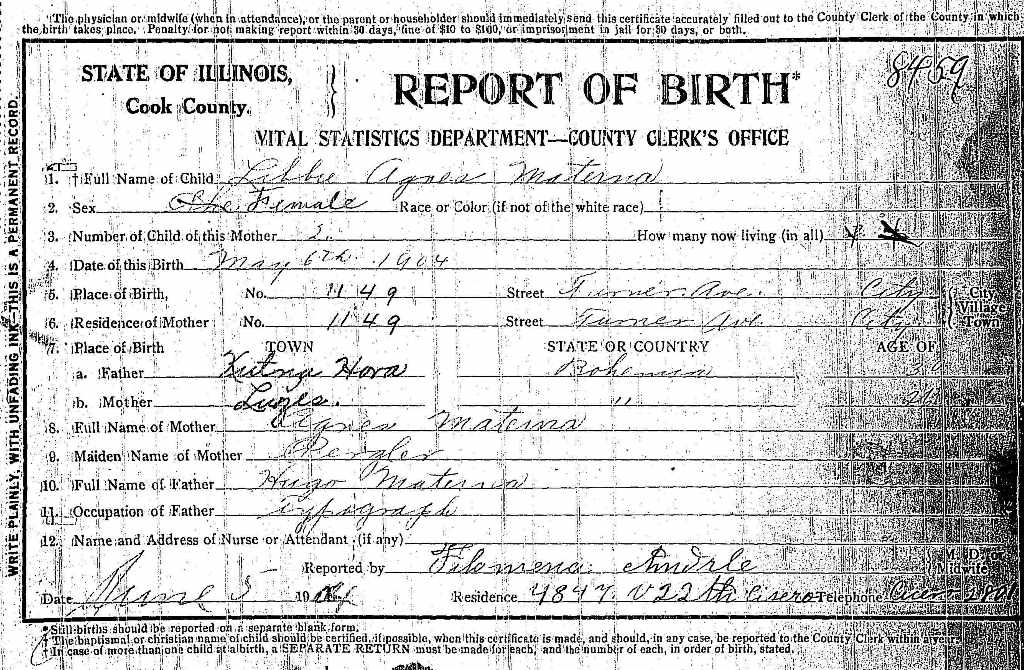 *The physician or midwife (when in attendance), or the parent or householder should immediately send this certificate accurately filled out to the County Clerk of the County in which
the birth takes place. Penalty for not making report within 30 days, fine of $10 to $100, or imprisonment in jail for 30 days, or both.
WRITE PLAINLY, WITH UNFADING INK—THIS IS A PERMANENT RECORD.
STATE OF ILLINOIS,
Cook County.
REPORT OF BIRTH*
8459
VITAL STATISTICS DEPARTMENT—COUNTY CLERK'S OFFICE
1. †Full Name of Child Libbie Agnes Materna
2. Sex Female Race or Color (if not of the white race)
3. Number of Child of this Mother 2. How many now living (in all)
4. Date of this Birth May 6th 1904
5. Place of Birth, No. 1149 Street Turner Ave. City
6. Residence of Mother No. 1149 Street Turner Ave. City
City Village Town
7. Place of Birth TOWN STATE OR COUNTRY AGE OF
a. Father Kutna Hora Bohemia
b. Mother Luzes. "
8. Full Name of Mother Agnes Materna
9. Maiden Name of Mother Pergler
10. Full Name of Father Hugo Materna
11. Occupation of Father Typograph
12. Name and Address of Nurse or Attendant (if any)
Reported by Filomena Andrle M. D. or Midwife
Date June 3 190 Residence 4847 W 22th Cicero Telephone Cicero
*Still-births should be reported on a separate blank form.
†The baptismal or christian name of child should be certified, if possible, when this certificate is made, and should, in any case, be reported to the County Clerk within a year.
In case of more than one child at a birth, a SEPARATE RETURN must be made for each, and the number of each, in order of birth, stated.